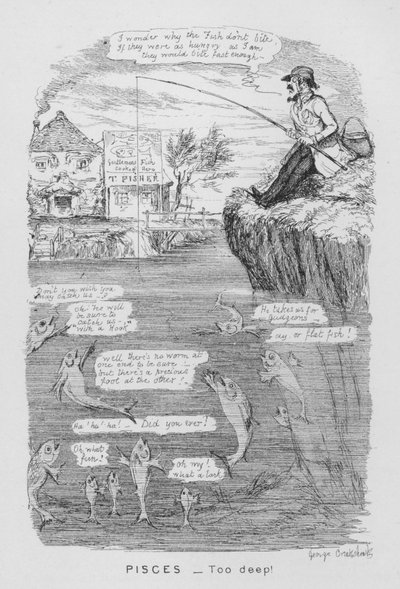 I wonder why the Fish dont bite
If they were as hungry as I am
they would bite fast enough –
Gentlemens Fish
cooked Here
T. FISHER
Don't you wish you
may catch us –?
Oh! he will
be sure to
catch us –
"with a Hook"
He takes us for
Gudgeons –
ay or flat fish!
well there's no worm at
one end to be sure –
but there's a precious
fool at the other!
Ha! ha! ha! – Did you ever!
Oh what
fun!
Oh my!
what a lark
George Cruikshank
PISCES – Too deep!